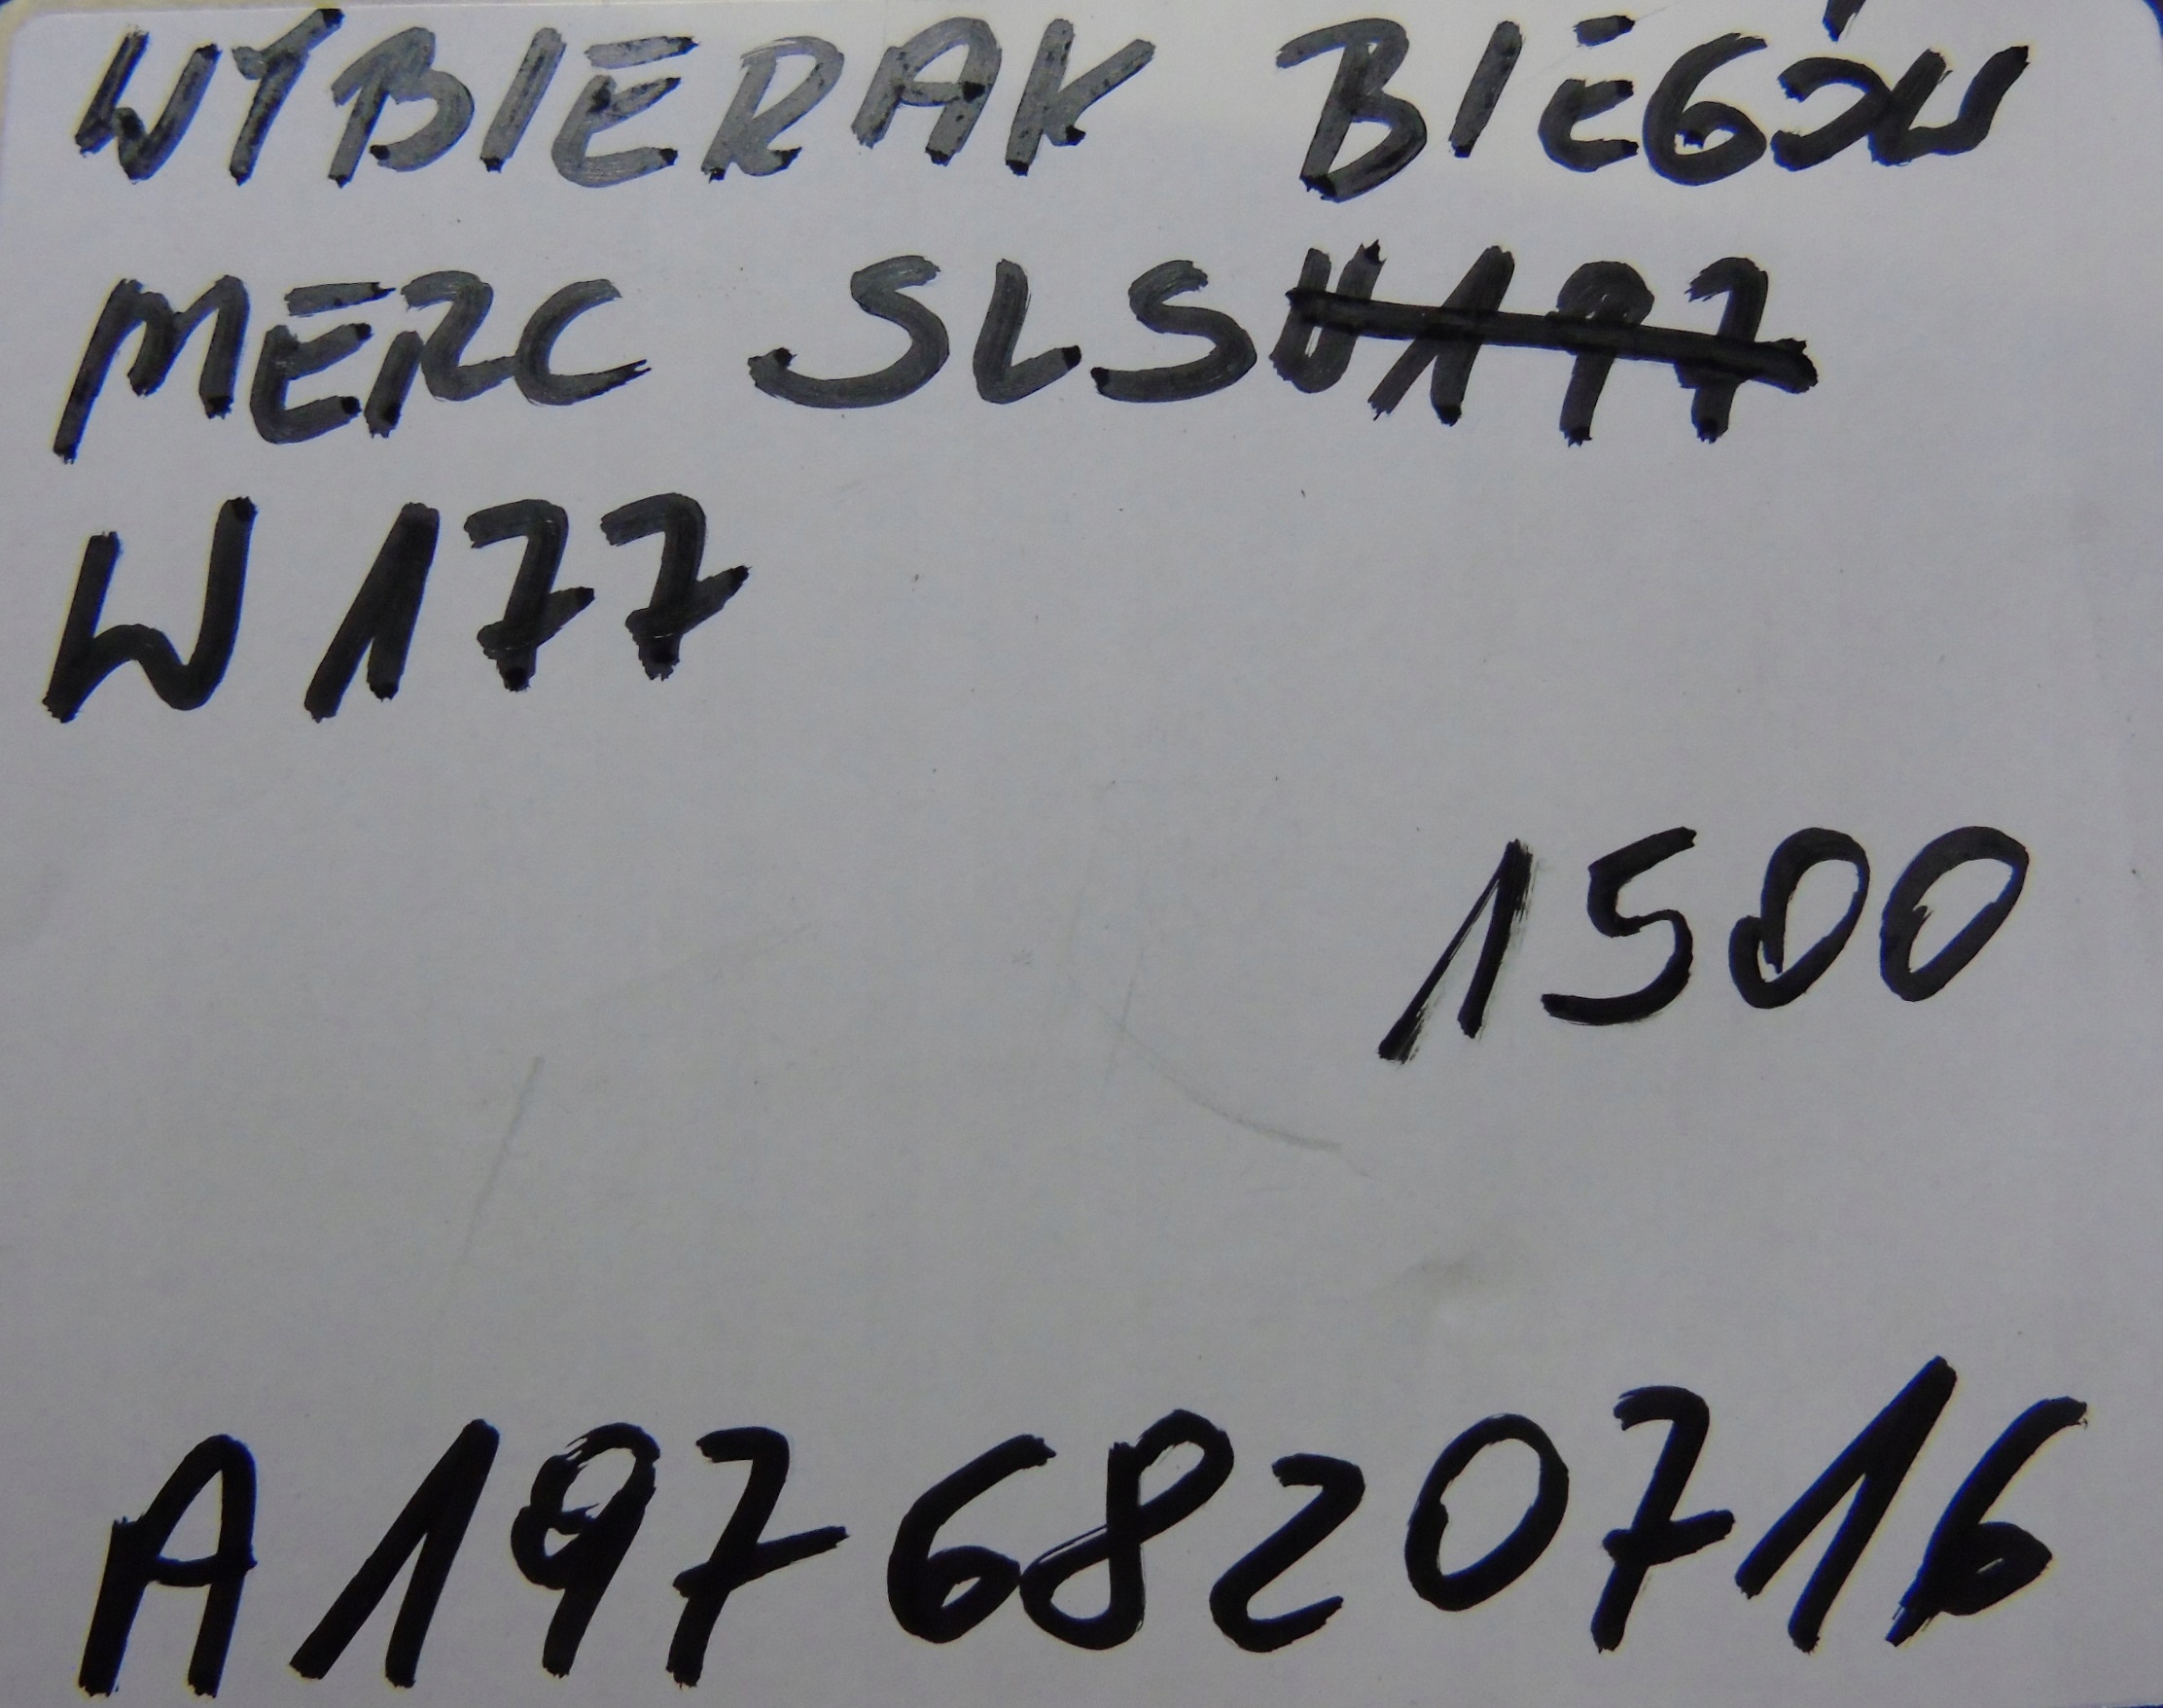 WYBIERAK BIEGÓW
MERC SLS W197
W177
1500
A1976820716